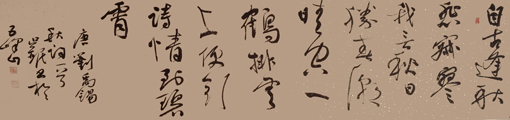 自古逢秋
悲寂寥
我言秋日
胜春潮
晴空一
鹤排云
上便引
诗情到碧
霄
唐刘禹锡
秋词一首